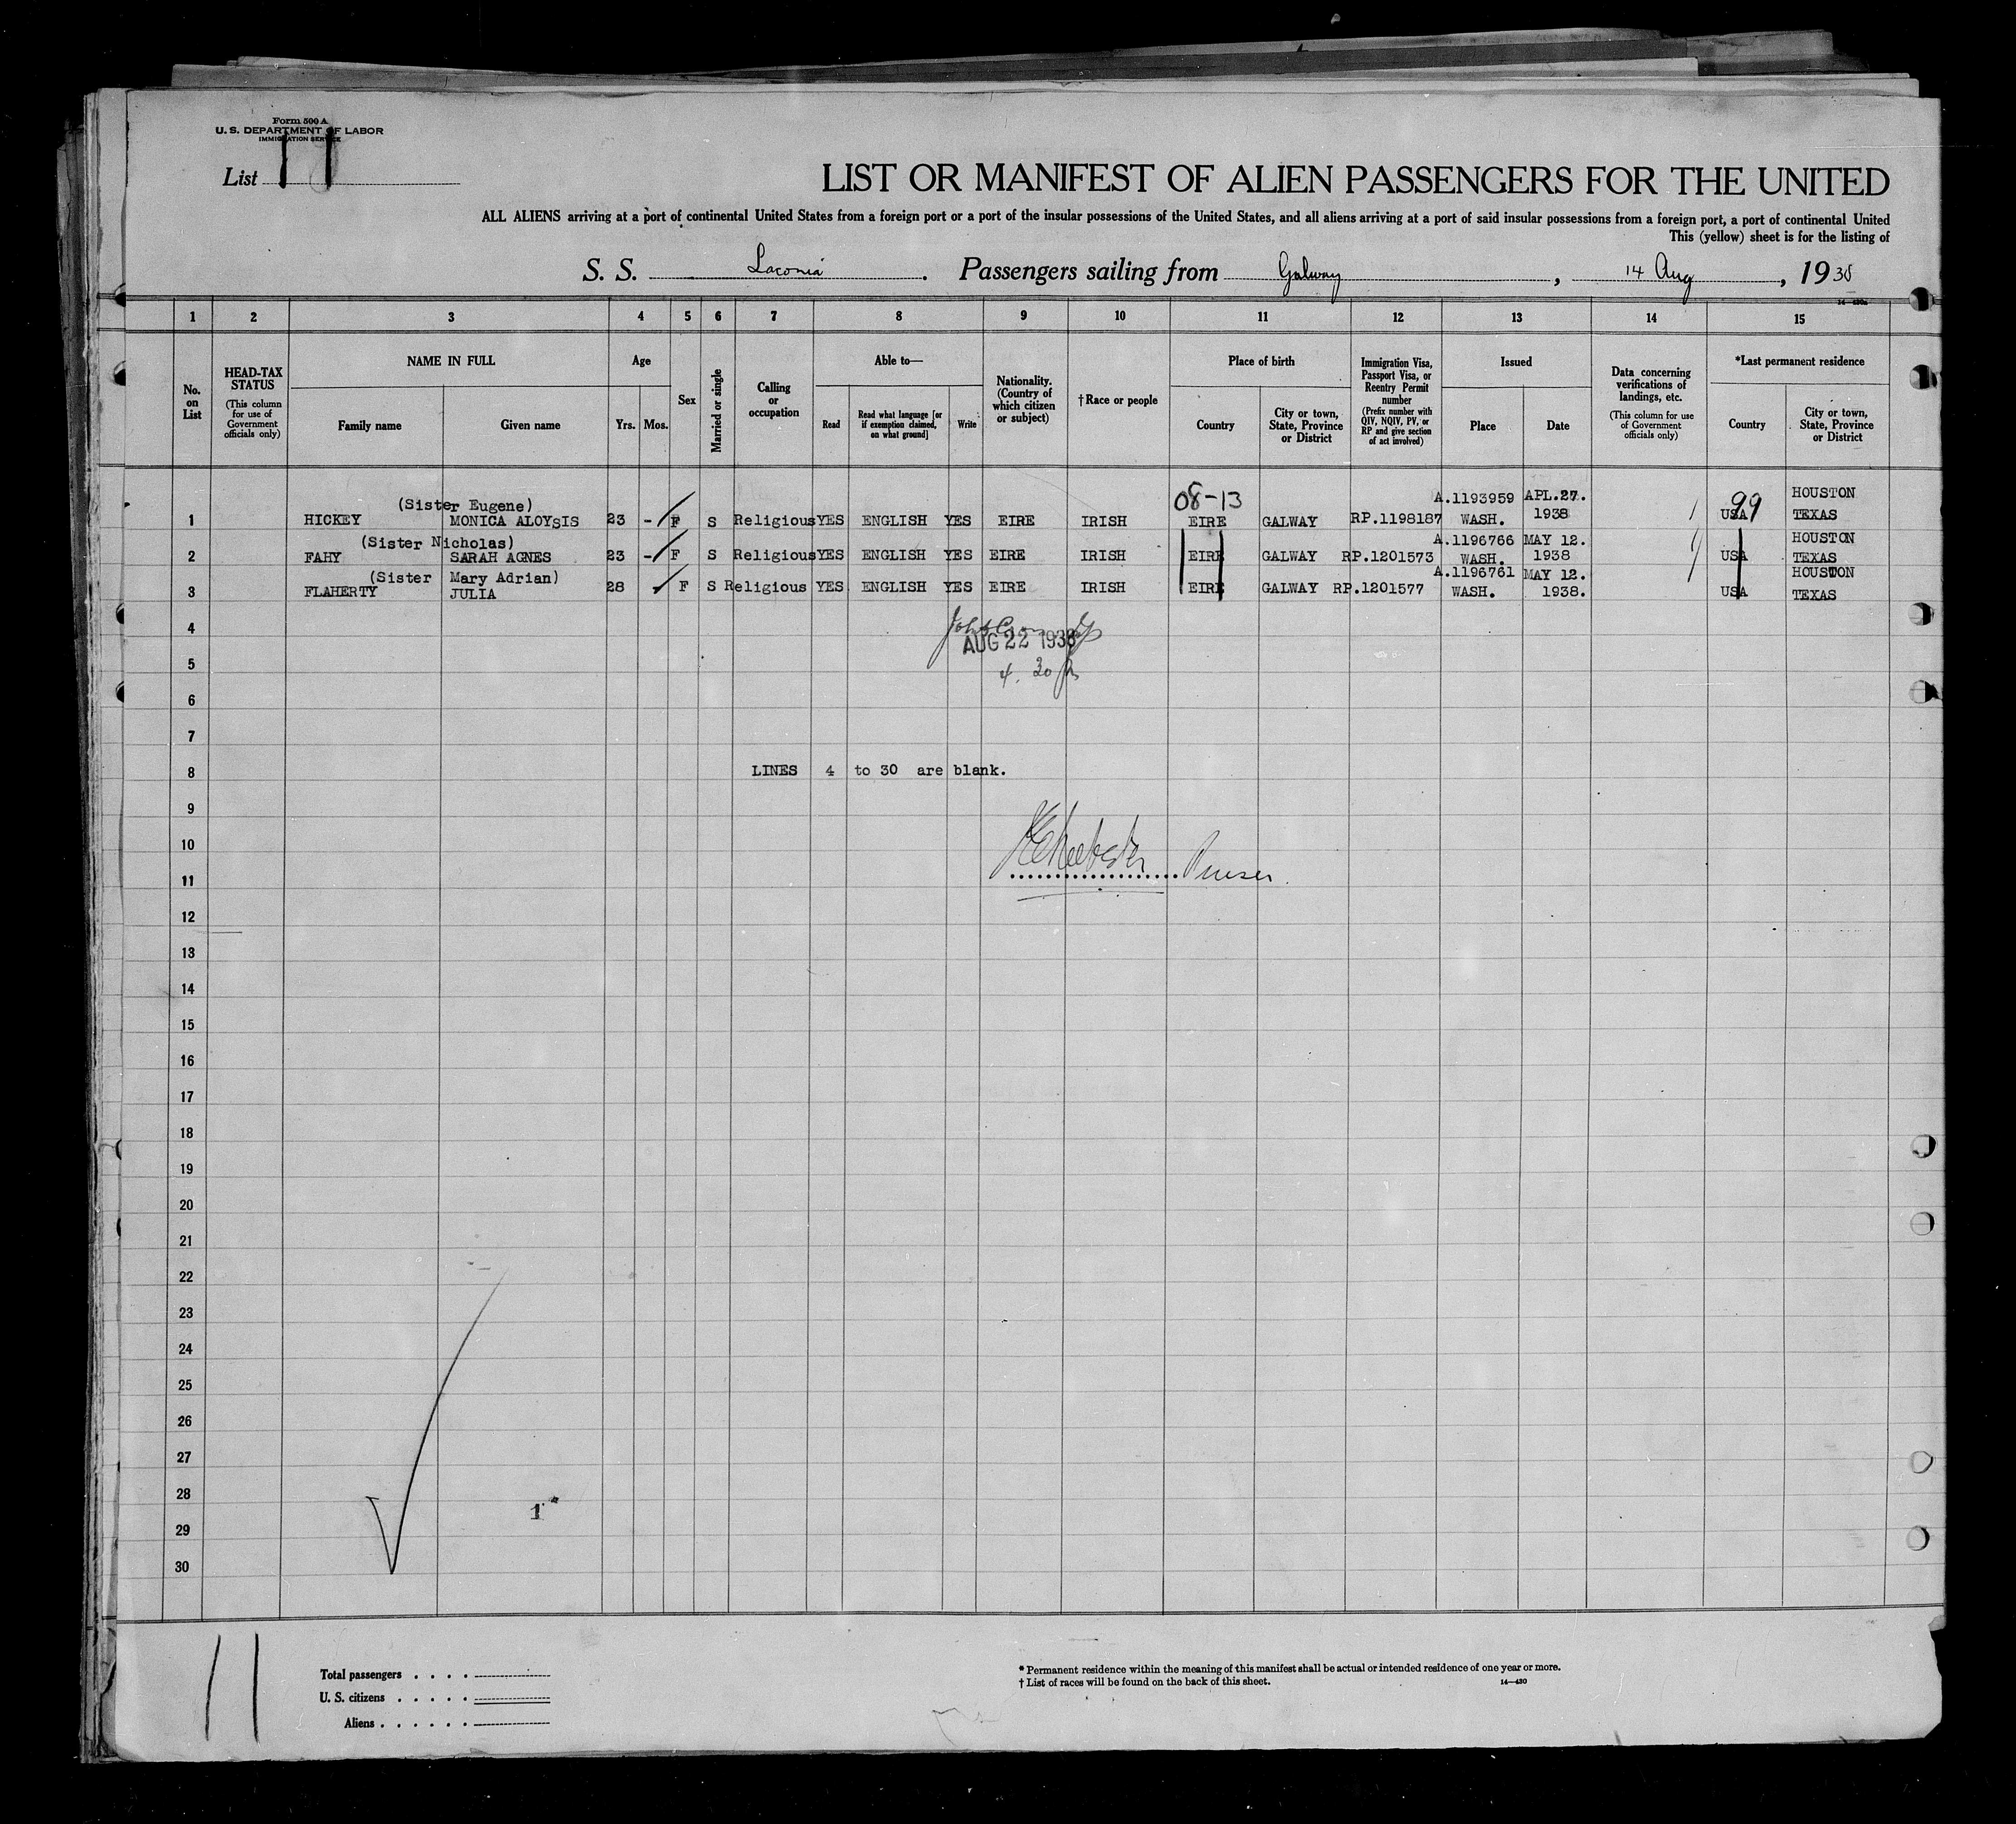 Form 500 A
U. S. DEPARTMENT OF LABOR
IMMIGRATION SERVICE
List 11
LIST OR MANIFEST OF ALIEN PASSENGERS FOR THE UNITED
ALL ALIENS arriving at a port of continental United States from a foreign port or a port of the insular possessions of the United States, and all aliens arriving at a port of said insular possessions from a foreign port, a port of continental United
This (yellow) sheet is for the listing of
S. S. Laconia. Passengers sailing from Galway, 14 Aug, 1938
1 2 3 4 5 6 7 8 9 10 11 12 13 14 15
No. on List
HEAD-TAX STATUS
(This column for use of Government officials only)
NAME IN FULL
Family name
Given name
Age
Yrs. Mos.
Sex
Married or single
Calling or occupation
Able to—
Read
Read what language [or if exemption claimed, on what ground]
Write
Nationality. (Country of which citizen or subject)
†Race or people
Place of birth
Country
City or town, State, Province or District
Immigration Visa, Passport Visa, or Reentry Permit number
(Prefix number with QIV, NQIV, PV, or RP and give section of act involved)
Issued
Place
Date
Data concerning verifications of landings, etc.
(This column for use of Government officials only)
*Last permanent residence
Country
City or town, State, Province or District
08-13 99
(Sister Eugene) A.1193959 APL.27. HOUSTON
1 HICKEY MONICA ALOYSIS 23 - F S Religious YES ENGLISH YES EIRE IRISH EIRE GALWAY RP.1198187 WASH. 1938 USA TEXAS
(Sister Nicholas) A.1196766 MAY 12. HOUSTON
2 FAHY SARAH AGNES 23 - F S Religious YES ENGLISH YES EIRE IRISH EIRE GALWAY RP.1201573 WASH. 1938 USA TEXAS
(Sister Mary Adrian) A.1196761 MAY 12. HOUSTON
3 FLAHERTY JULIA 28 F S Religious YES ENGLISH YES EIRE IRISH EIRE GALWAY RP.1201577 WASH. 1938. USA TEXAS
4
AUG 22 1938
5
4.30
6
7
8 LINES 4 to 30 are blank.
9
10
11 Purser.
12
13
14
15
16
17
18
19
20
21
22
23
24
25
26
27
28
1
29
30
11
Total passengers . . . .
U. S. citizens . . . . .
Aliens . . . . . .
* Permanent residence within the meaning of this manifest shall be actual or intended residence of one year or more.
† List of races will be found on the back of this sheet.
14—430